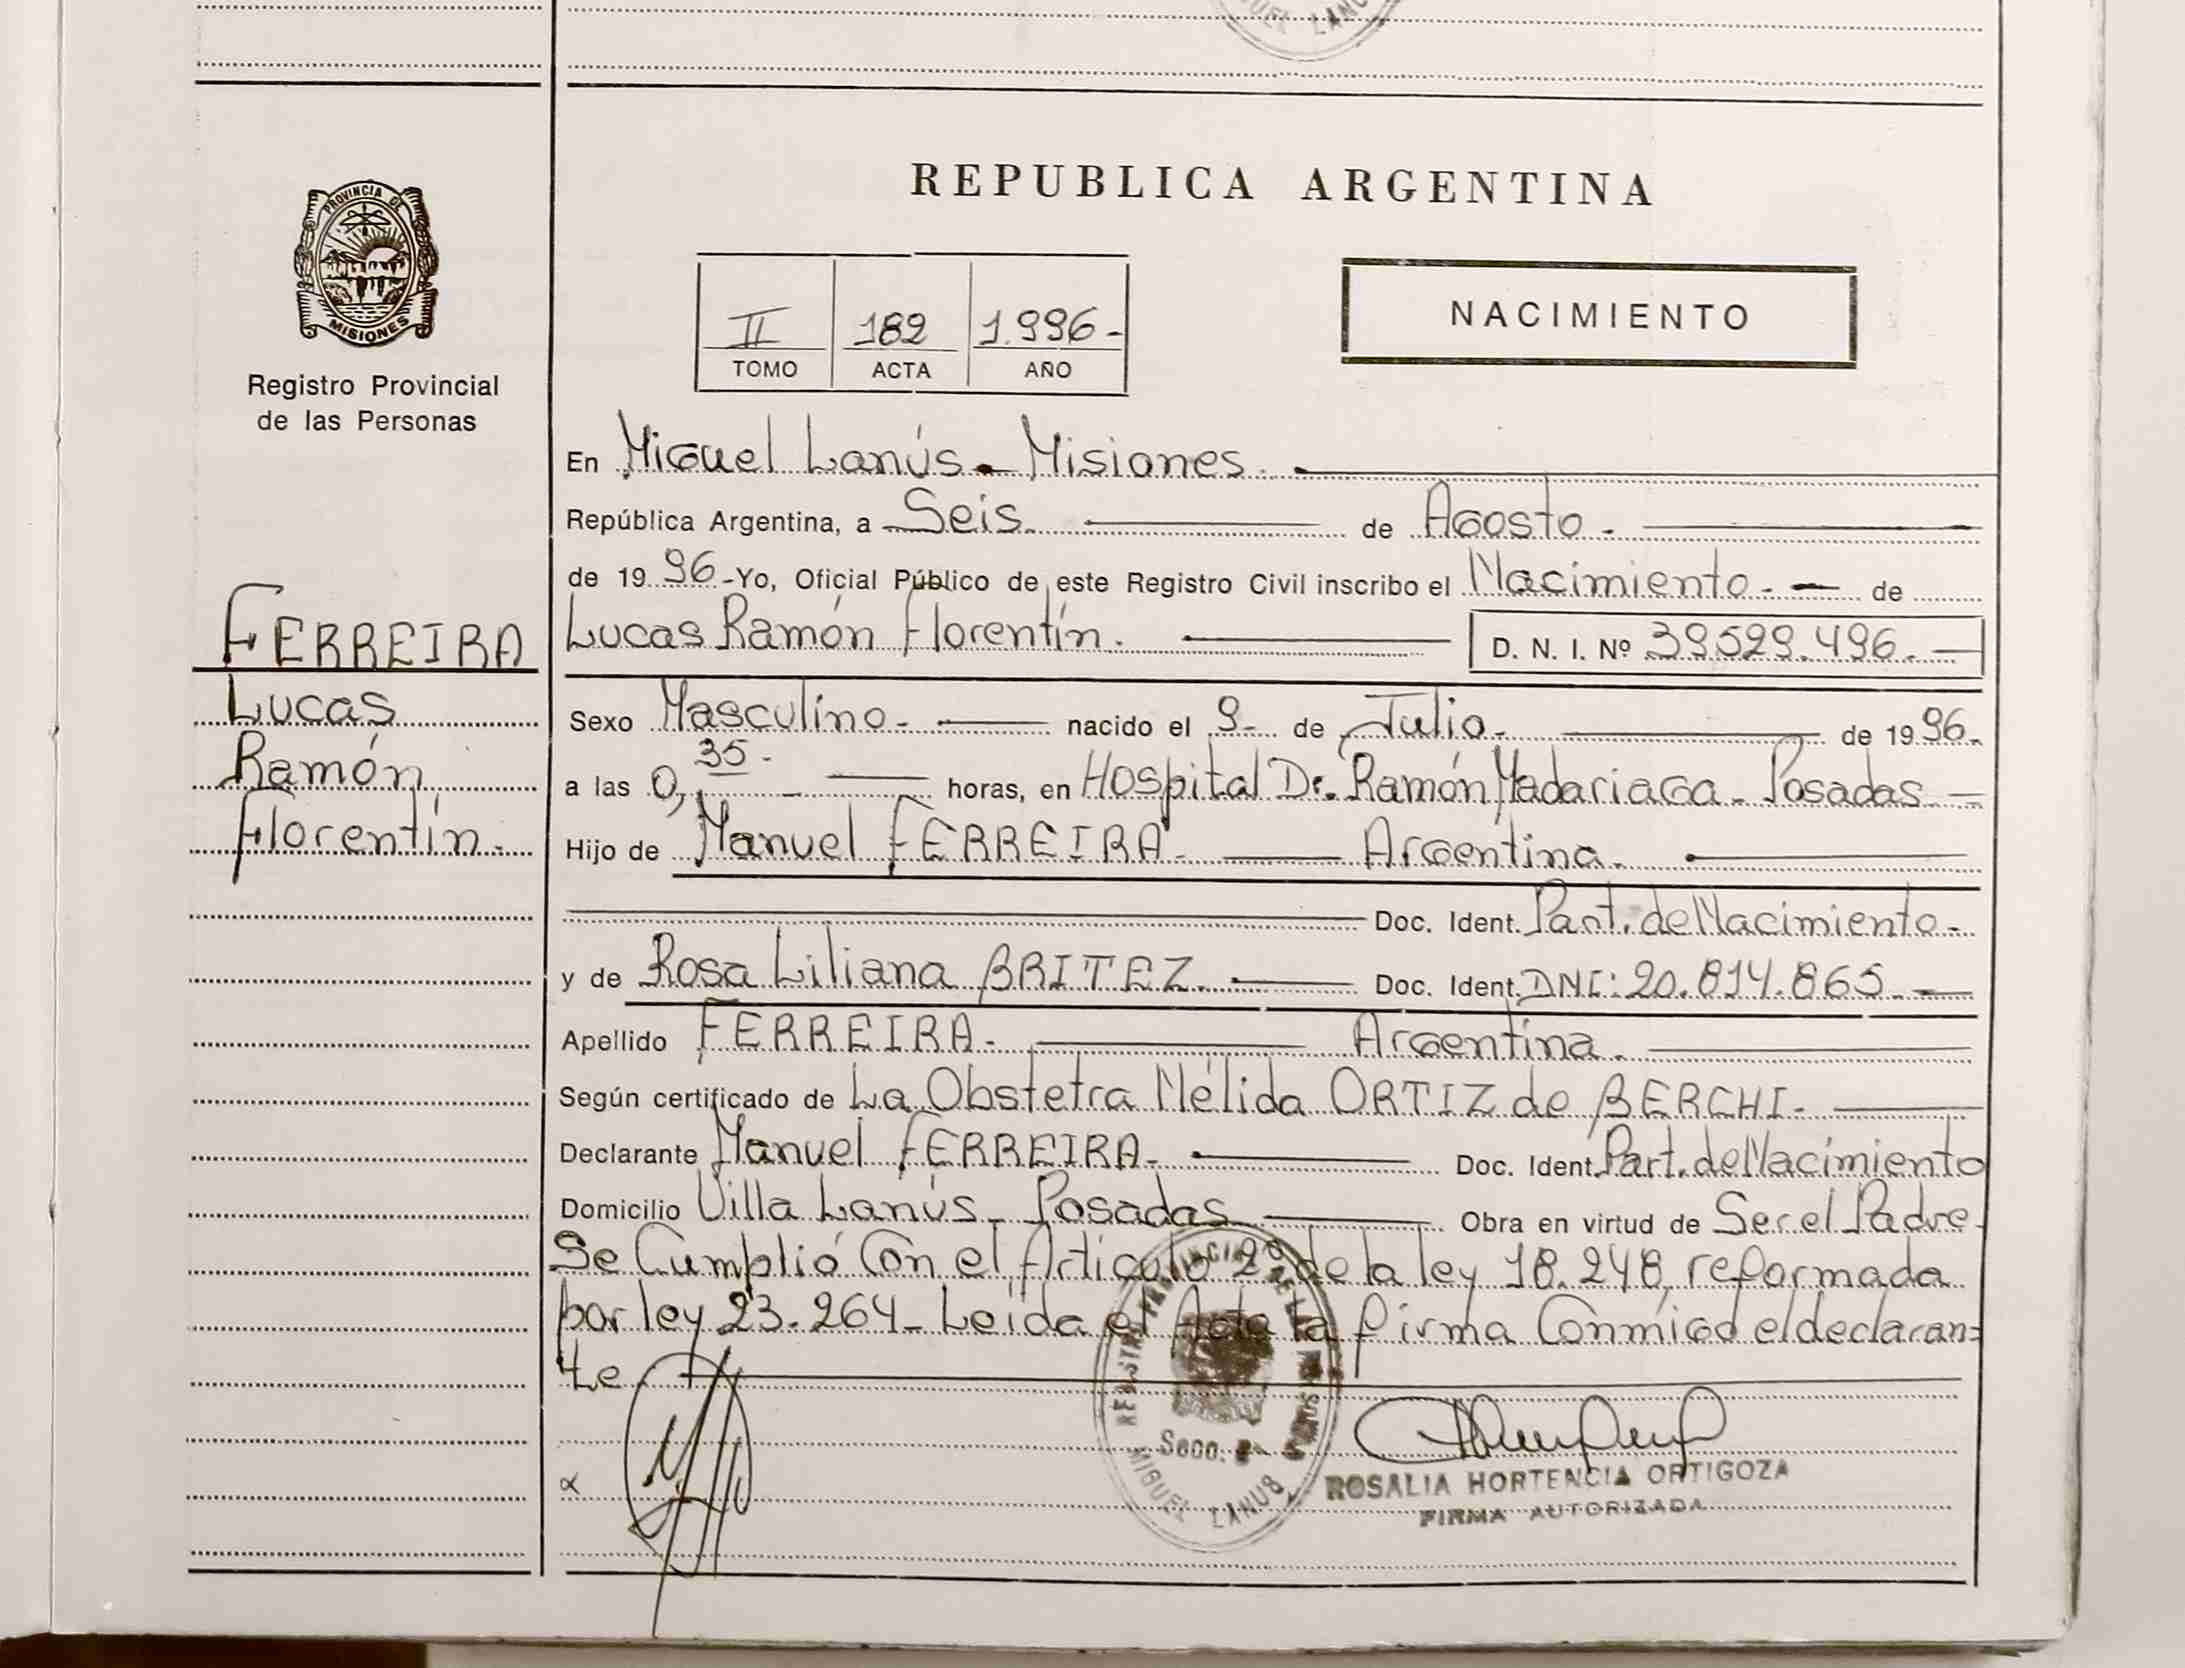 MIGUEL LANUS
PROVINCIA DE
MISIONES
Registro Provincial
de las Personas
FERREIRA
Lucas
Ramón
Florentín.-
REPUBLICA ARGENTINA
II 182 1.996-
TOMO ACTA AÑO
NACIMIENTO
En Miguel Lanús - Misiones.
República Argentina, a Seis. de Agosto.
de 1996.-Yo, Oficial Público de este Registro Civil inscribo el Nacimiento.- de
Lucas Ramón Florentín. D. N. I. Nº 39.529.496.-
Sexo Masculino- nacido el 9- de Julio. de 1996.
a las 0,35- horas, en Hospital Dr. Ramón Madariaga - Posadas -
Hijo de Manuel FERREIRA- Argentina.
Doc. Ident. Part. de Nacimiento-
y de Rosa Liliana BRITEZ. Doc. Ident. DNI: 20.814.865.-
Apellido FERREIRA- Argentina.
Según certificado de La Obstetra Nélida ORTIZ de BERCHI-
Declarante Manuel FERREIRA- Doc. Ident. Part. de Nacimiento
Domicilio Villa Lanús- Posadas Obra en virtud de Ser el Padre-
Se Cumplió Con el Artículo 2º de la ley 18.248, reformada
por ley 23.264- Leída el Acta la firma Conmigo el declaran=
te
MIGUEL LANUS
ROSALIA HORTENCIA ORTIGOZA
FIRMA AUTORIZADA